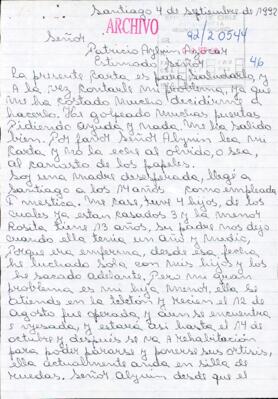 Santiago 4 de septiembre de 1992
ARCHIVO
92/20544
Señor
Patricio Alywin Azocar
Estimado Señor
46
La presente Carta es para saludarlo, y
A la vez Contarle mi problema, ya que
me ha Costado mucho decidirme a
hacerlo. He golpeado muchas puertas
Pidiendo ayuda y nada, me ha Salido
bien. Por favor Señor Alywin lea mi
Carta y no la eche al olvido, o sea,
al canasto de los papeles.
Soy una madre desesperada, llegé a
Santiago a los 14 años como empleada
Domestica. Me case, tuve 4 hijos, de los
cuales ya estan casados 3 y la menor
Rosita tiene 13 años, su padre nos dejo
cuando ella tenia un Año y medio,
Porque era enferma, desde esa fecha
he luchado sola con mis hijos y los
he sacado adelante, Pero mi gran
problema es mi hija menor, ella se
atiende en la teletón y recien el 12 de
Agosto fue operada, y aun se encuentra
enyesada, y estará asi hasta el 14 de
octubre y después se va A rehabilitación
para poder pararse y ponerse sus ortisis,
ella actualmente anda en silla de
ruedas. Señor Alywin desde que el